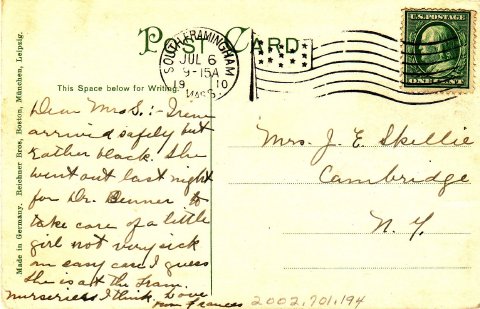 POST CARD
This Space below for Writing.
Made in Germany. Reichner Bros, Boston, München, Leipzig.
SOUTH FRAMINGHAM
JUL 6
9-15A
19 10
MASS.
U.S. POSTAGE
ONE CENT
Dear Mrs S:- Irene
arrived safely but
rather black. She
went out last night
for Dr. Benner to
take care of a little
girl not very sick
an easy case I guess
She is at the Fram.
nurseries I think. Love
from Frances
Mrs. J. E. Skellie
Cambridge
N. Y.
2002.701.194